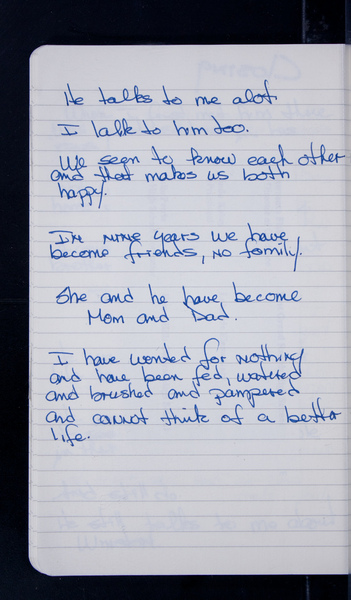 He talks to me alot.
I talk to him too.
We seem to know each other
and that makes us both
happy.
In nine years we have
become friends, no family.
She and he have become
Mom and Dad.
I have wanted for nothing
and have been fed, watered
and brushed and pampered
and cannot think of a better
life.